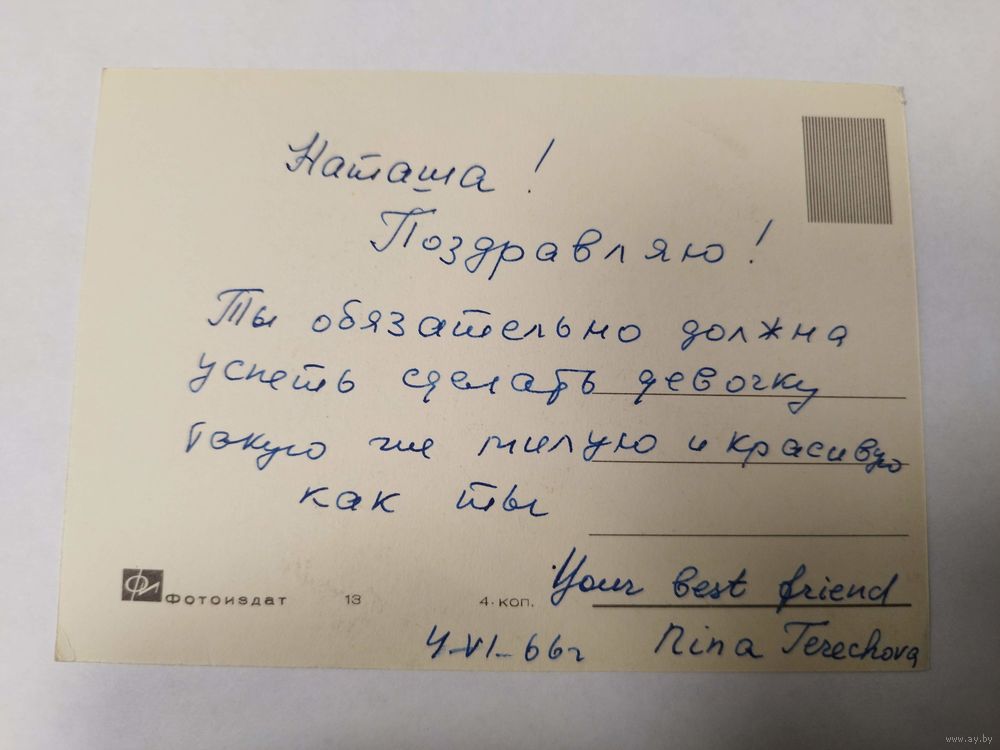 Наташа!
Поздравляю!
Ты обязательно должна
успеть сделать девочку
такую же милую и красивую
как ты
Your best friend
ФОТОИЗДАТ 13 4 КОП.
4-VI-66г Nina Terechova
www.ay.by